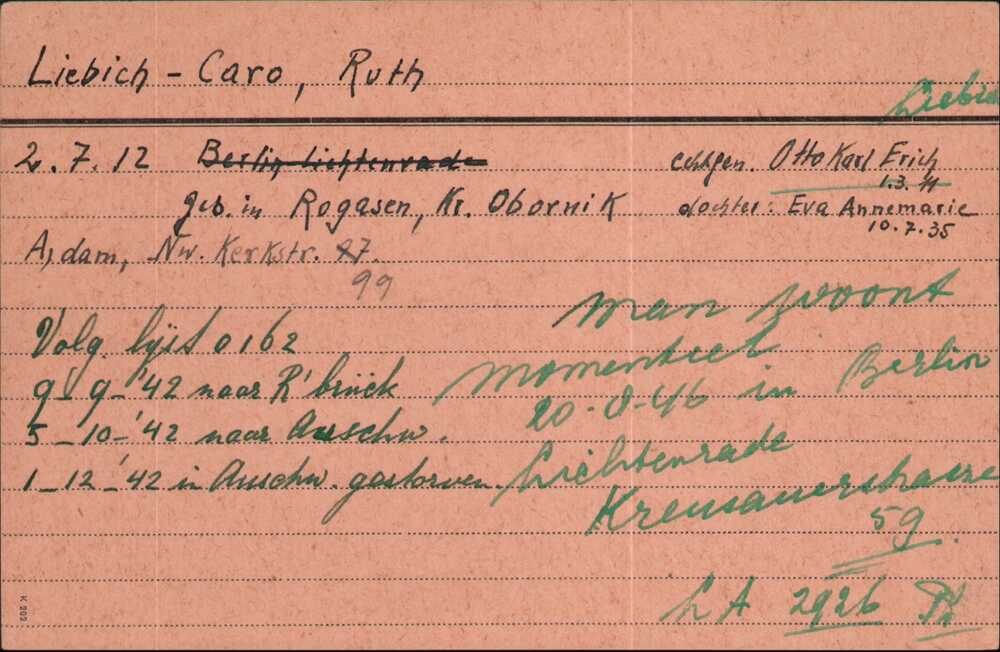 Liebich - Caro, Ruth
Liebic
2.7.12 Berlin-Lichtenrade echtgen. Otto Karl Erich
1.3.11
geb. in Rogasen, Kr. Obornik dochter: Eva Annemarie
10.7.35
A,dam, Nw. Kerkstr. 27.
99
Volg. lijst 0162
9-9-'42 naar R'brück
5-10-'42 naar Auschw.
1-12-'42 in Auschw. gestorven.
man woont
momenteel
20-8-46 in Berlin
Lichtenrade
Kreusauerstrasse
59.
LA 2926
K 202